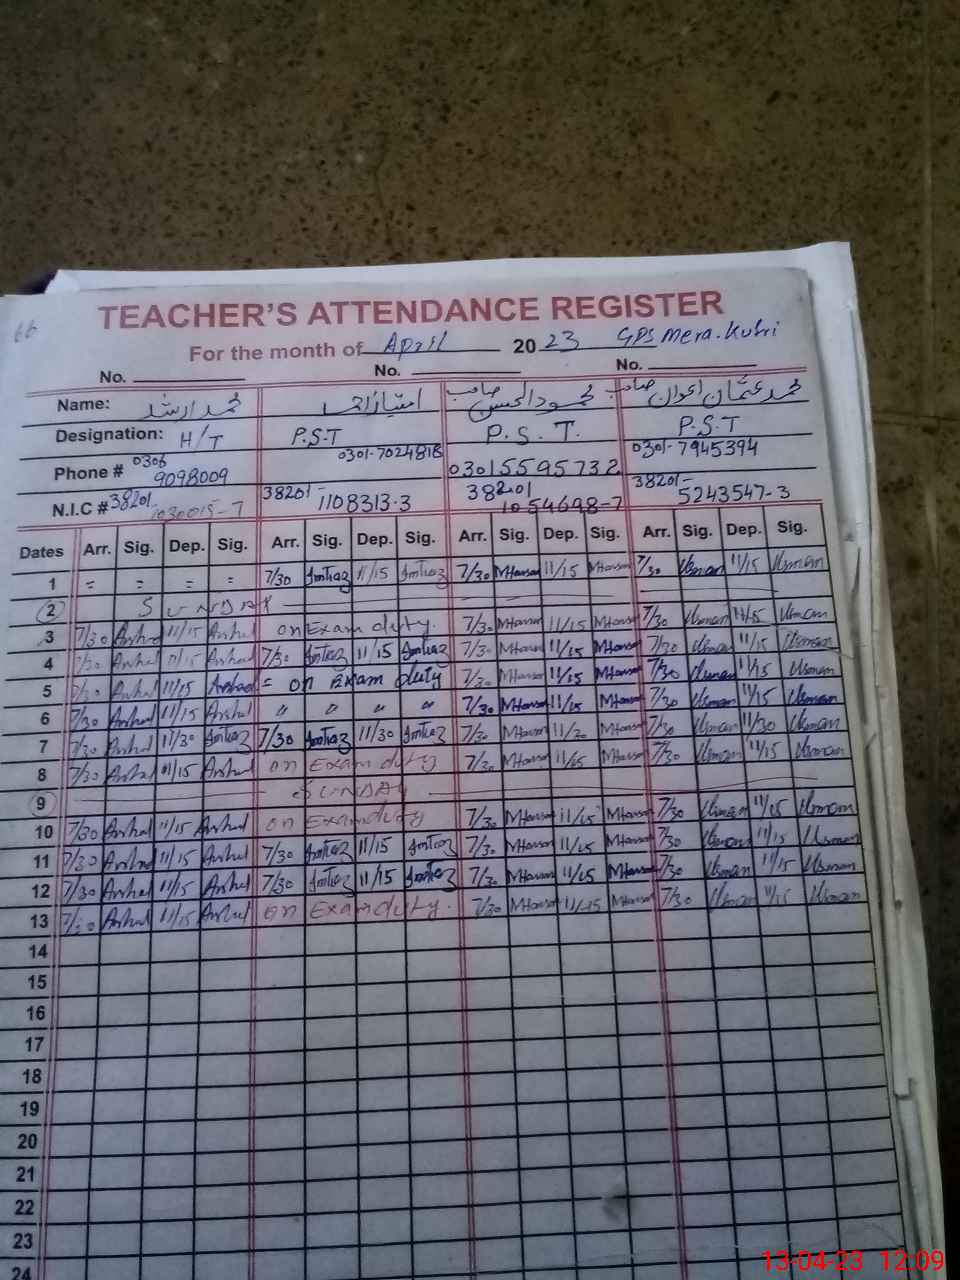 66
TEACHER'S ATTENDANCE REGISTER
For the month of April 2023 GPS Mera. Kubri
No. No. No.
Name: محمد ارشد امتیاز احمد محمود الحسن صاحب محمد عثمان اعوان صاحب
Designation: H/T P.S.T P.S.T. P.S.T
Phone # 0306 9098009 0301-7024818 03015595732 0301-7945394
N.I.C # 38201-1030015-7 38201-1108313-3 38201 1054698-7 38201-5243547-3
Dates Arr. Sig. Dep. Sig. Arr. Sig. Dep. Sig. Arr. Sig. Dep. Sig. Arr. Sig. Dep. Sig.
1 = = = = 7/30 Imtiaz 11/15 Imtiaz 7/30 MHassan 11/15 MHassan 7/30 Usman 11/15 Usman
2 SUNDAY
3 7/30 Arshad 11/15 Arshad on Exam duty. 7/30 MHassan 11/15 MHassan 7/30 Usman 11/15 Usman
4 7/30 Arshad 11/15 Arshad 7/30 Imtiaz 11/15 Imtiaz 7/30 MHassan 11/15 MHassan 7/30 Usman 11/15 Usman
5 7/30 Arshad 11/15 Arshad = on Exam duty 7/30 MHassan 11/15 MHassan 7/30 Usman 11/15 Usman
6 7/30 Arshad 11/15 Arshad " " " " 7/30 MHassan 11/15 MHassan 7/30 Usman 11/15 Usman
7 7/30 Arshad 11/30 Imtiaz 7/30 Imtiaz 11/30 Imtiaz 7/30 MHassan 11/30 MHassan 7/30 Usman 11/30 Usman
8 7/30 Arshad 11/15 Arshad on Exam duty 7/30 MHassan 11/15 MHassan 7/30 Usman 11/15 Usman
9 SUNDAY
10 7/30 Arshad 11/15 Arshad on Exam duty 7/30 MHassan 11/15 MHassan 7/30 Usman 11/15 Usman
11 7/30 Arshad 11/15 Arshad 7/30 Imtiaz 11/15 Imtiaz 7/30 MHassan 11/15 MHassan 7/30 Usman 11/15 Usman
12 7/30 Arshad 11/15 Arshad 7/30 Imtiaz 11/15 Imtiaz 7/30 MHassan 11/15 MHassan 7/30 Usman 11/15 Usman
13 7/30 Arshad 11/15 Arshad on Exam duty. 7/30 MHassan 11/15 MHassan 7/30 Usman 11/15 Usman
14
15
16
17
18
19
20
21
22
23
24
13-04-23 12:09